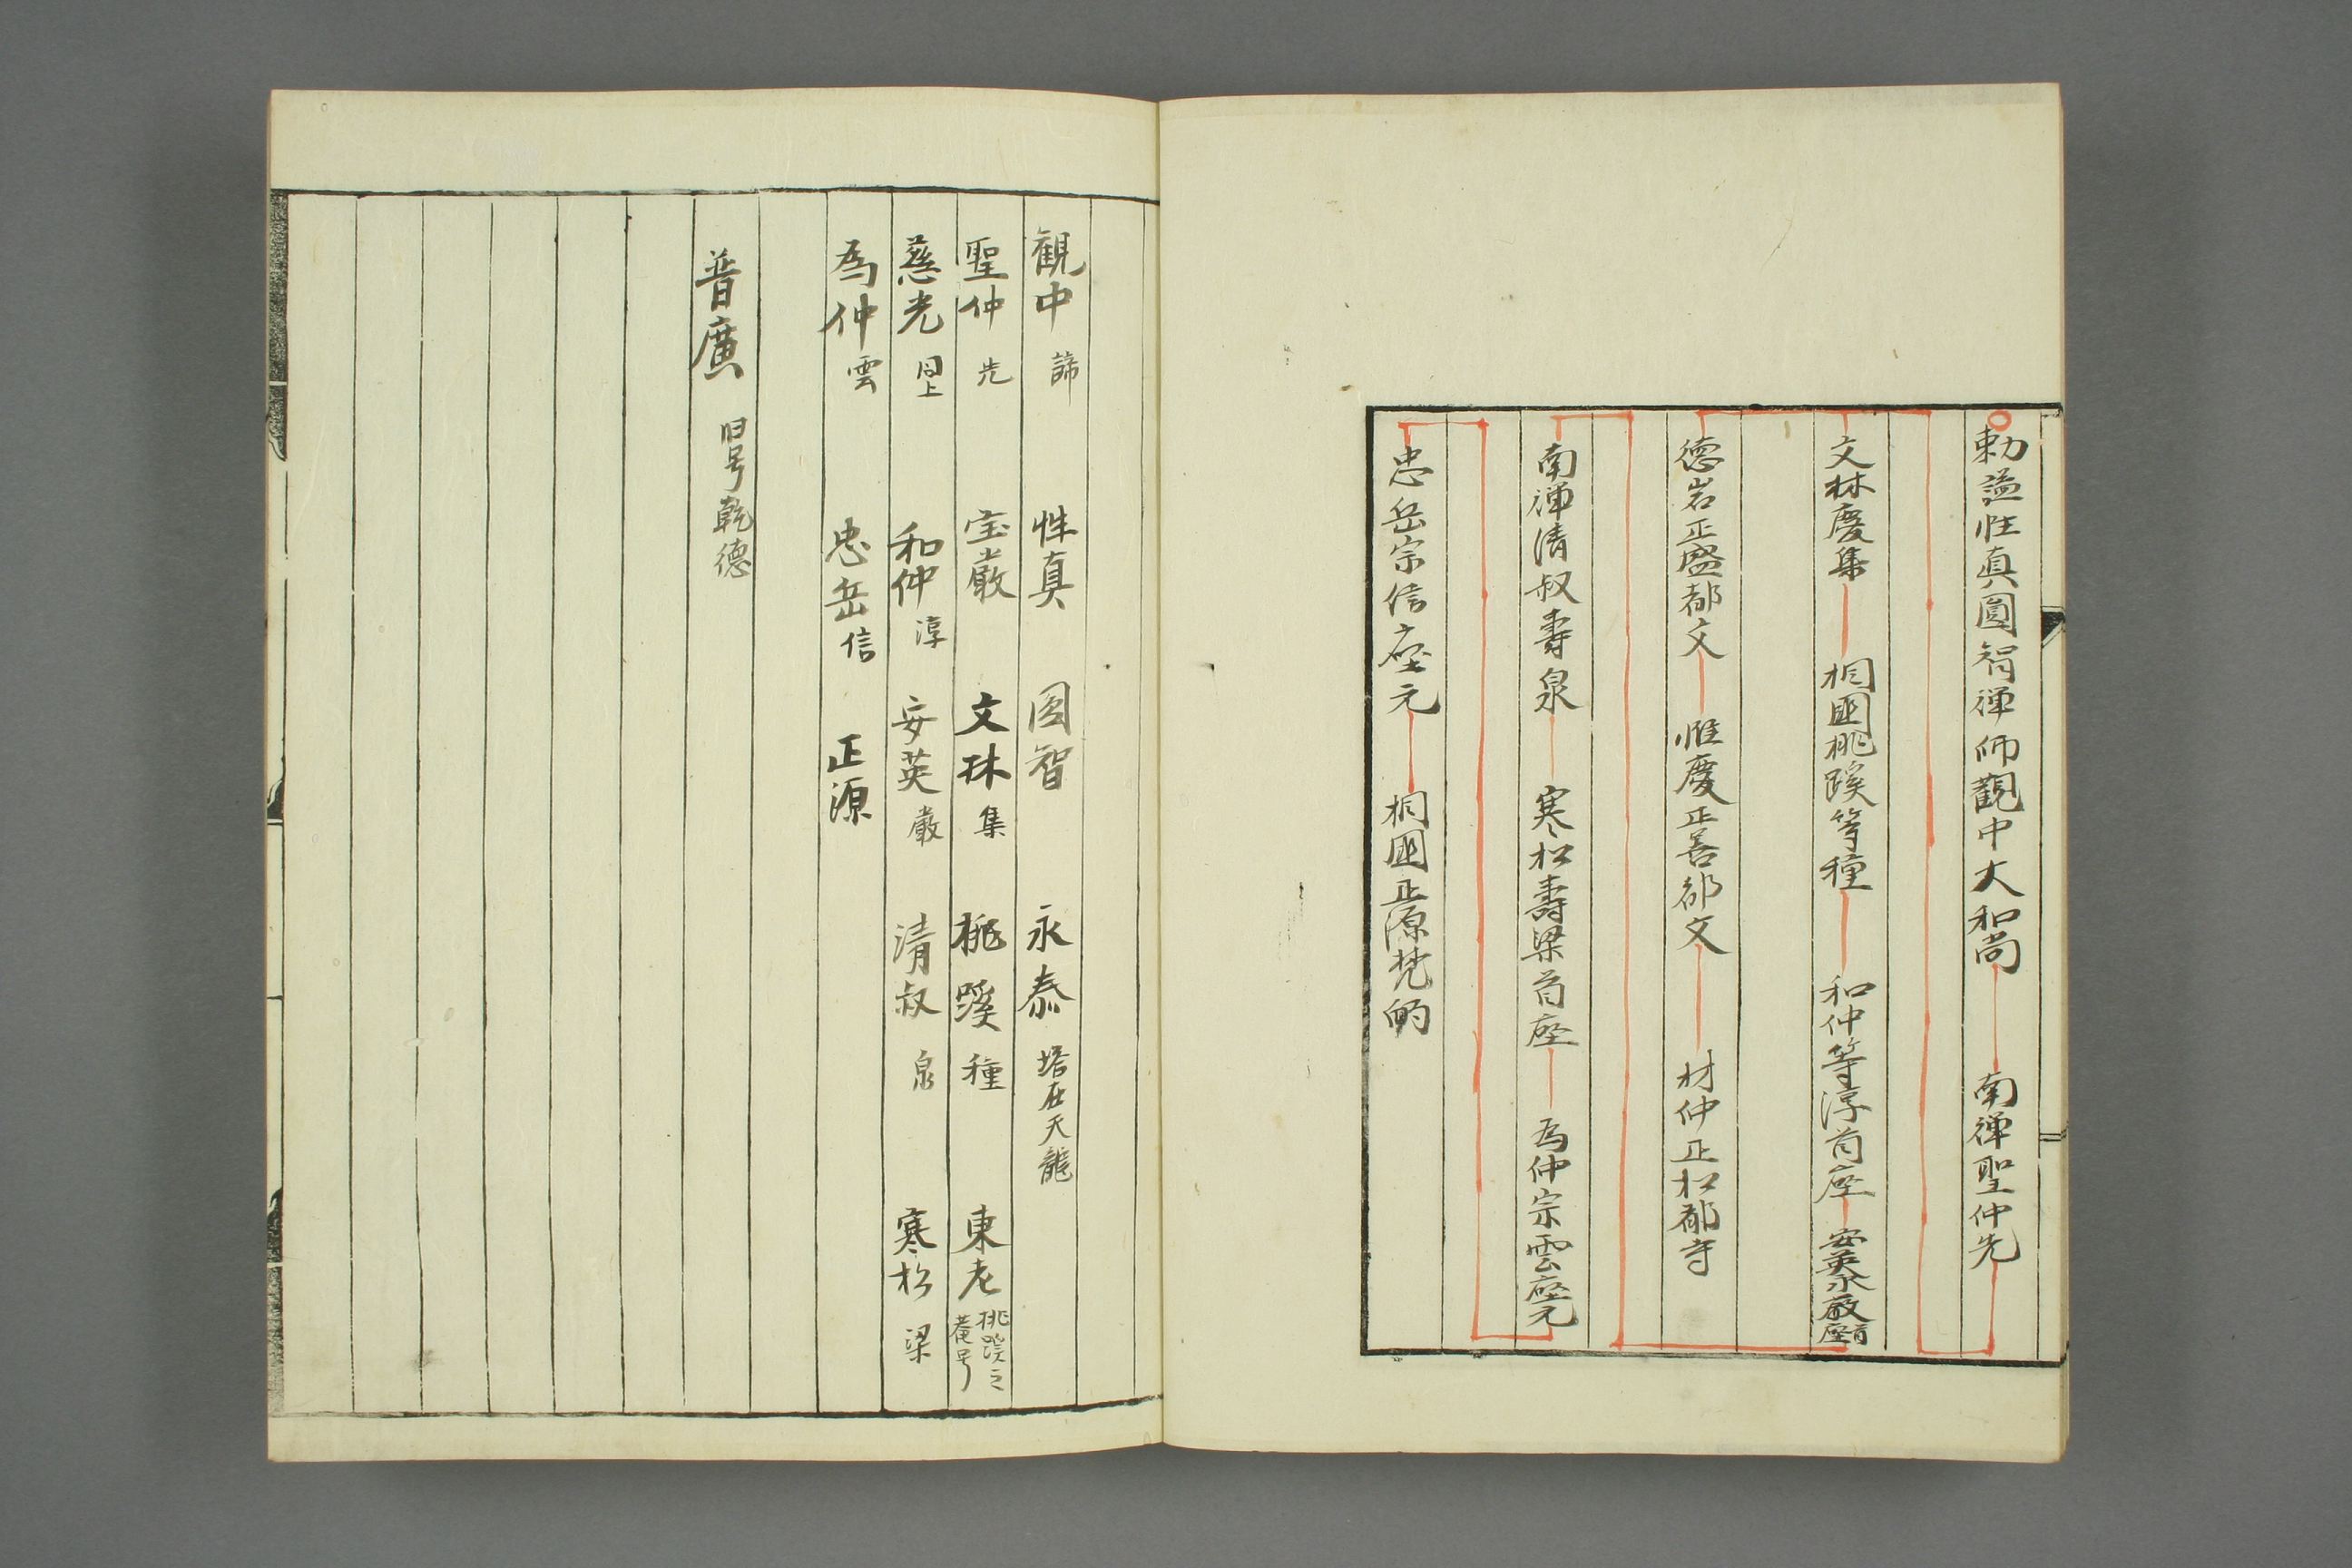 勅謚性真圓智禅師觀中大和尚 南禅聖仲先
文林慶集 桐國桃蹊等種 和仲等淳首座 安英永厳首座
德岩正盛都文 惟慶正善都文 材仲正松都寺
南禅清叔壽泉 寒松壽梁首座 為仲宗雲座元
忠岳宗信座元 桐國正源梵的
観中 諦 性真 圓智 永泰 塔在天龍
聖仲 先 宝厳 文林 集 桃蹊 種 東老 桃蹊之菴号
慈光 同上 和仲 淳 安英 厳 清叔 泉 寒松 梁
為仲 雲 忠岳 信 正源
普廣 旧号乾德